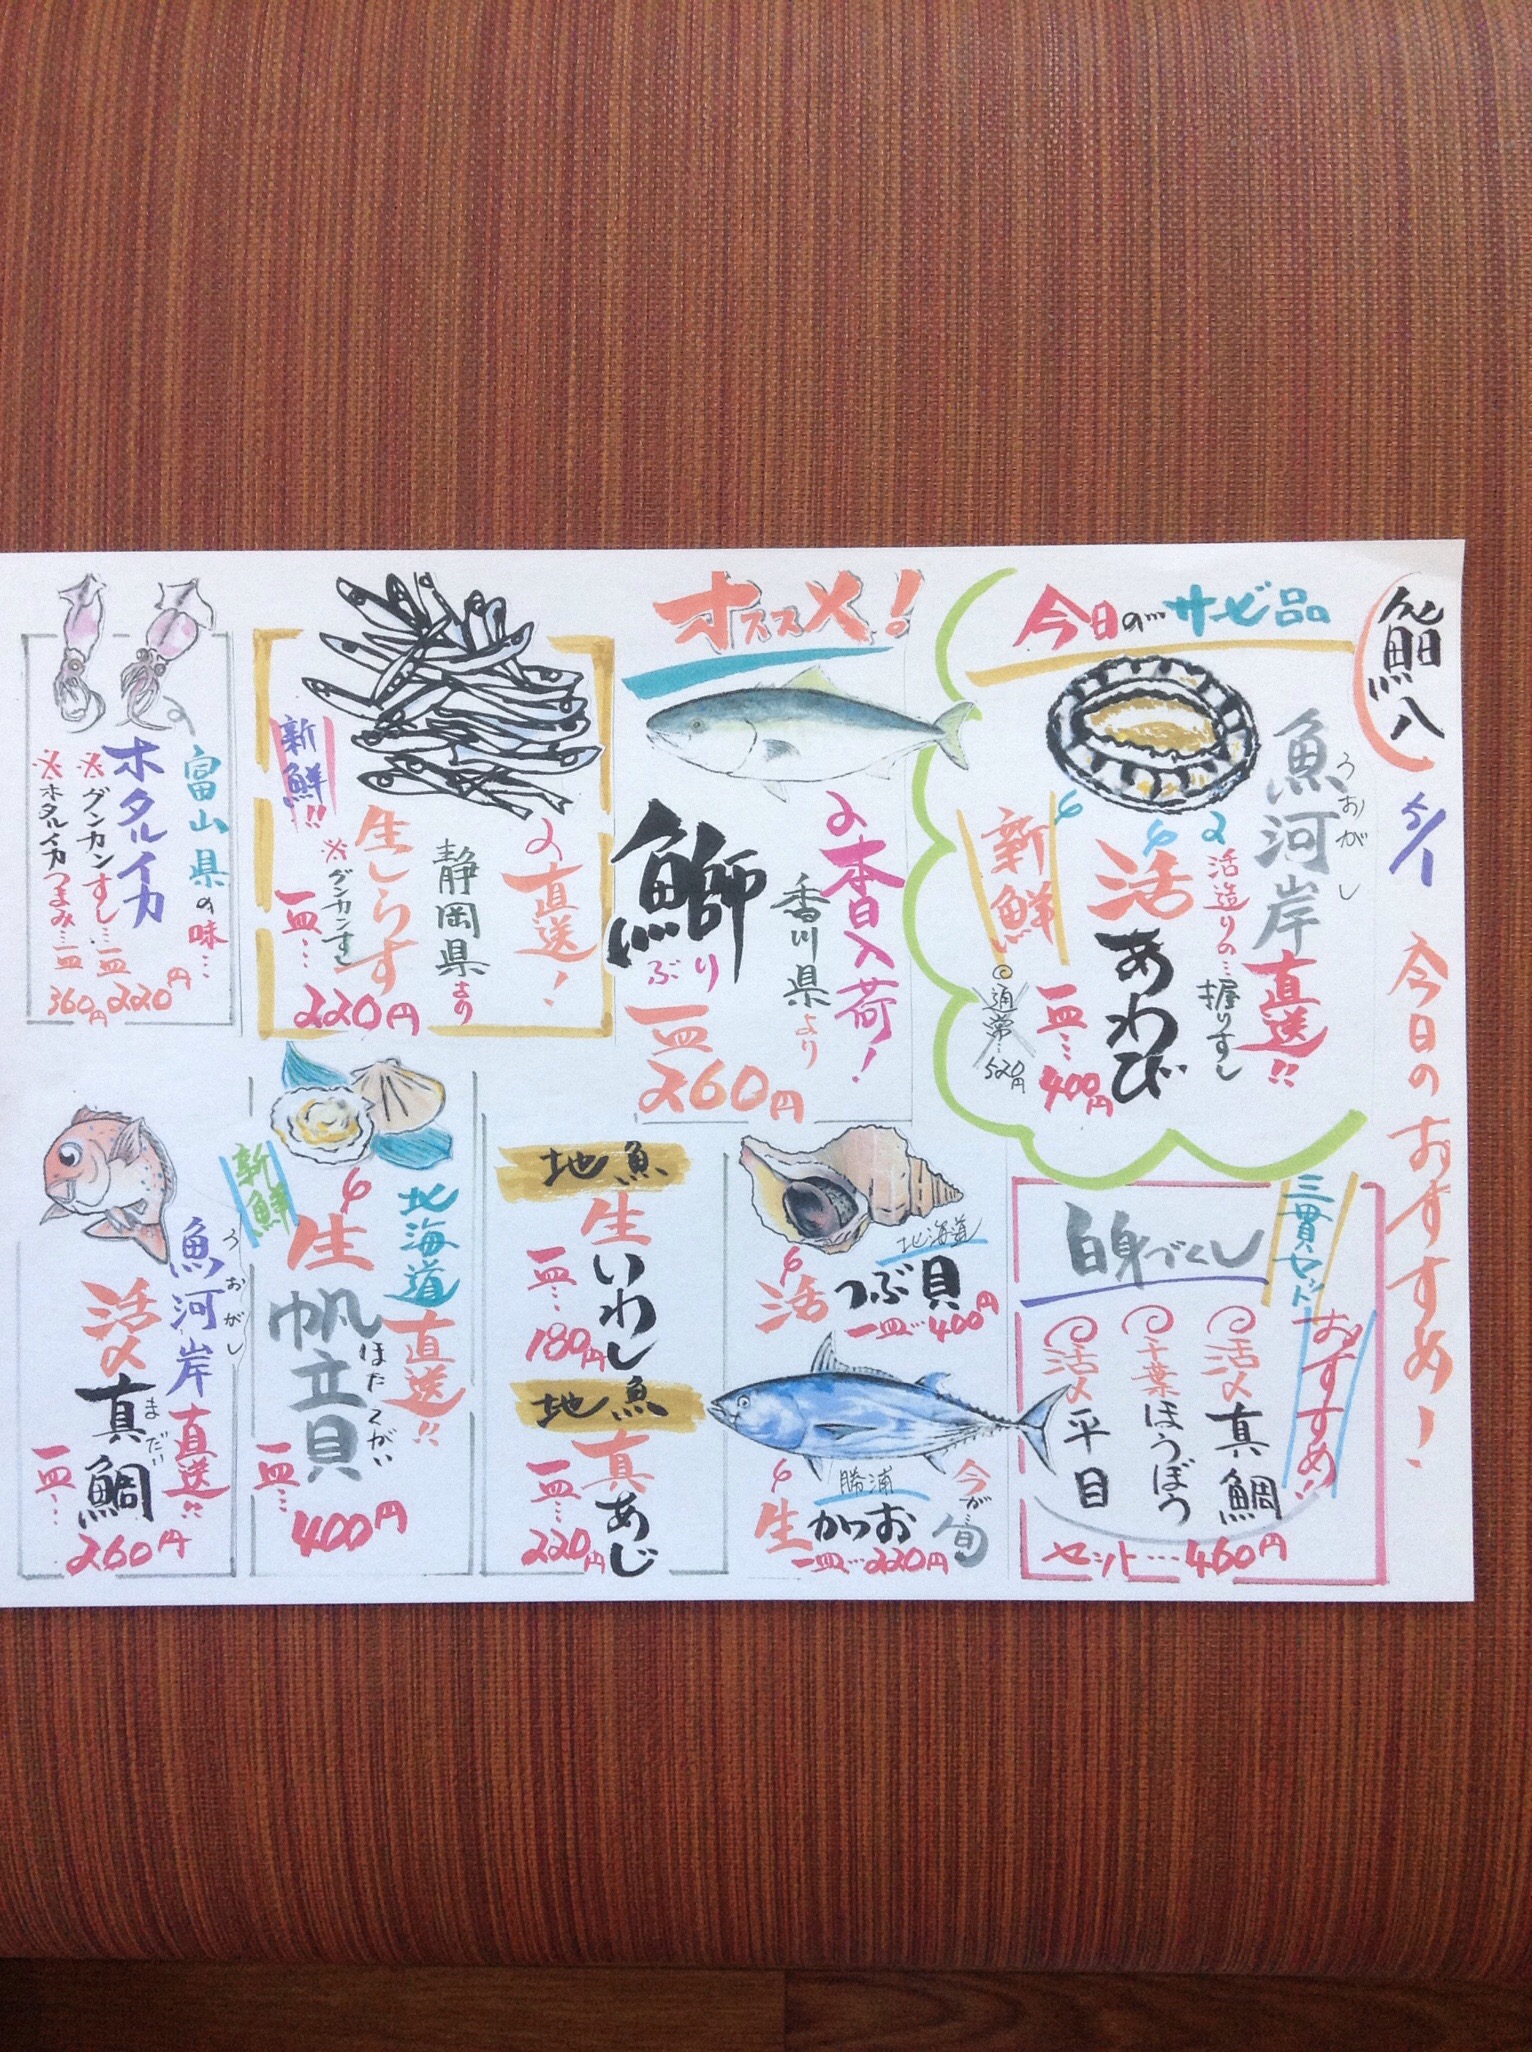 鮨八
5/1
今日のおすすめ!
今日の…サービ品
魚河岸
うおがし
直送!!
活造りの…握りすし
活あわび
一皿…400円
新鮮
通常…520円
オススメ!
本日入荷!
香川県より
鰤
ぶり
一皿
260円
直送!
静岡県より
生しらす
※グンカンすし
一皿…
220円
新鮮!!
富山県の味…
ホタルイカ
※グンカンすし…一皿220円
※ホタルイカつまみ…一皿360円
三貫セット
おすすめ!!
白身づくし
活〆真鯛
千葉ほうぼう
活〆平目
セット…460円
北海道
活つぶ貝
一皿…400円
今が…旬
勝浦
生かつお
一皿…220円
地魚
生いわし
一皿…180円
地魚
真あじ
一皿…220円
北海道直送!!
生帆立貝
ほたてがい
一皿…
400円
新鮮
魚河岸直送!!
うおがし
活〆真鯛
まだい
一皿…
260円